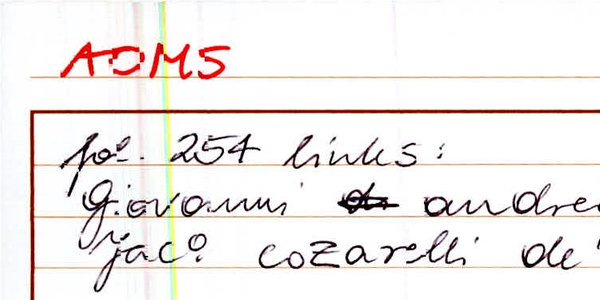 AOMS
fol. 254 links:
Giovanni andre
jaco. cozarelli de